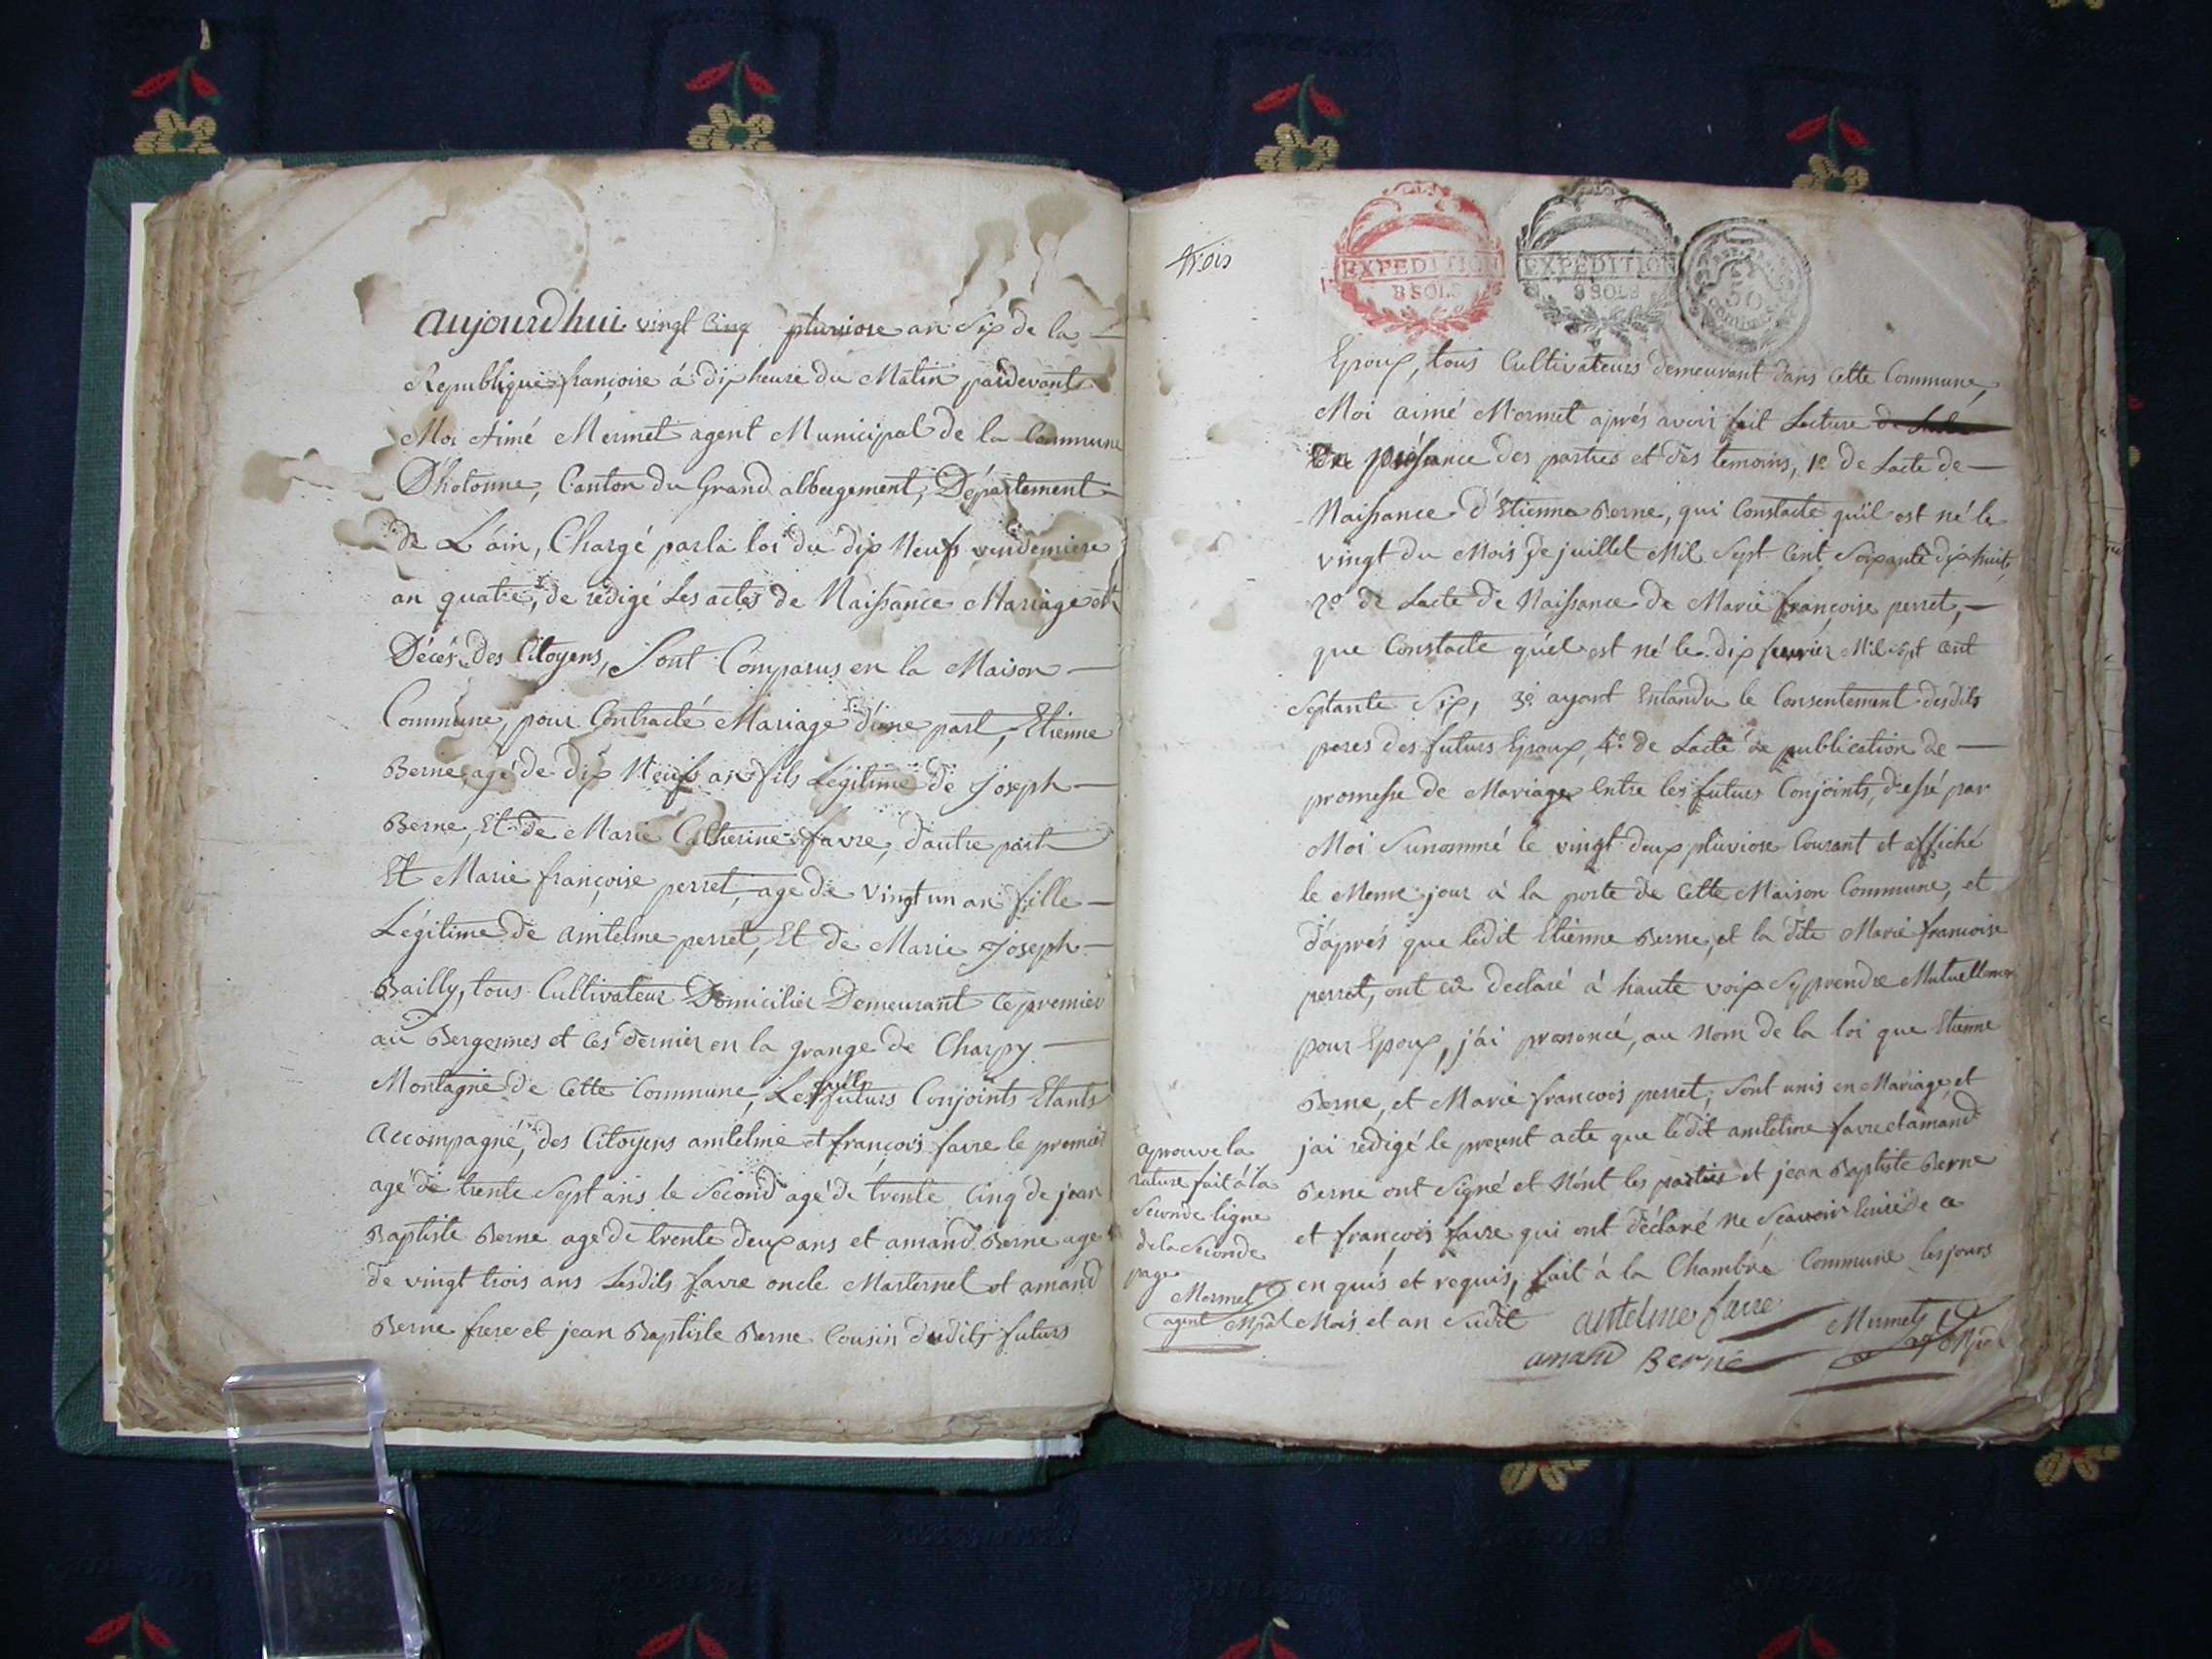 aujourdhui vingt Cinq pluviose an Six de la
Republique françoise á dix heure du Matin pardevant
Moi Aimé Mermet agent Municipal de la Commune
D'hotonne, Canton du Grand albergement, Département
de L'ain, Chargé par la loi du dix Neuf vendemiere
an quatre, de rédigé Les actes de Naissance Mariage et
Décés des Citoyens, Sont Comparus en la Maison
Commune, pour Contracté Mariage d'une part, Etienne
Berne, agé de dix Neuf an fils Légitime de Joseph
Berne, Et de Marie Catherine favre, d'autre part
Et Marie françoise perret, age de vingt un an fille
Légitime de antelme perret, Et de Marie Joseph
Bailly, tous Cultivateur Domicilier Demeurant Ce premier
au Bergonnes et Ces dernier en la grange de Charpy
Montagne de Cette Commune, Lesquels futurs Conjoints Etants
accompagné, des Citoyens antelme et françois favre le premier
agé de trente Sept ans le Second agé de trente Cinq de jean
Baptiste Berne age de trente deux ans et amand Berne age
de vingt trois ans Lesdits favre oncle Marternel et amand
Berne frere et jean Baptiste Berne Cousin dudits futurs
trois
EXPEDITION
8 SOLS
EXPEDITION
8 SOLS
50
Centimes
Epoux, tous Cultivateurs demeurant dans Cette Commune,
Moi aimé Mermet aprés avoir fait Lecture
En présance des parties et des temoins, 1º de Lacte de
Naissance d'Etienne Berne, qui Constate qu'il est né le
vingt du Mois de juillet Mil Sept Cent Soixante dix huit,
2º de Lacte de Naissance de Marie françoise perret,
que Constacte quél est né le dix fevrier Mil sept Cent
Septante Six, 3º ayant Entandu le Consentement desdits
peres des futurs Epoux, 4º de Lacte de publication de
promesse de Mariage Entre les futurs Conjoints, dressé par
Moi Sunommé le vingt deux pluviose Courant et affiché
le Meme jour á la porte de Cette Maison Commune, et
d'aprés que ledit Etienne Berne, et la dite Marie francoise
perret, ont eu declaré á haute voix Sy prendre Mutuellemen
pour Epoux, j'ai prononcé, au Nom de la loi que Etienne
Berne, et Marie francois perret, Sont unis en Mariage, et
jai redigé le present acte que ledit antelme favre et amand
Berne ont Signé et Nont les parties et jean Baptiste Berne
et françois favre qui ont déclaré ne Scavoir de ce
en quis et requis, fait á la Chambre Commune les jours
Mois et an Sudit
aprouve la
rature fait á la
Seconde ligne
de la Seconde
page
Mermet
agent Mpal
antelme favre
Mermet
ag Mpal
amand Berne